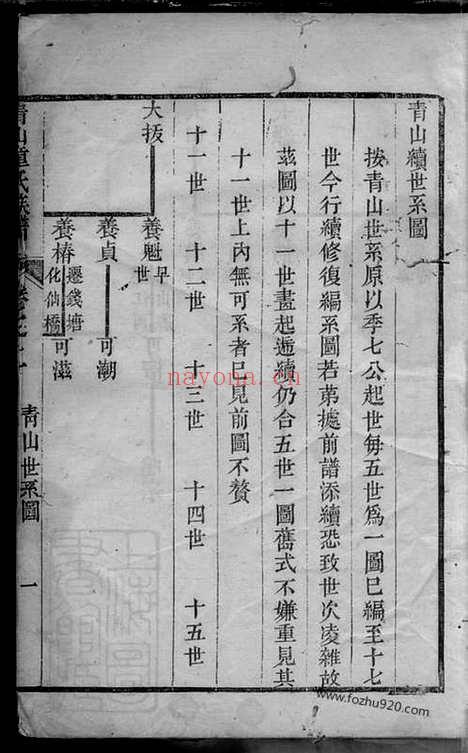 青山續世系圖
按青山世系原以季七公起世每五世爲一圖已編至十七
世今行續修復編系圖若弟據前譜添續恐致世次凌雜故
茲圖以十一世畫起遞續仍合五世一圖舊式不嫌重見其
十一世上內無可系者已見前圖不贅
十一世 十二世 十三世 十四世 十五世
大抜
養魁 早世
養貞 可潮
養椿 遷錢塘化仙橋 可滋
青山 氏族譜
青山世系圖 一
nayona.cn
www.fozhu920.com